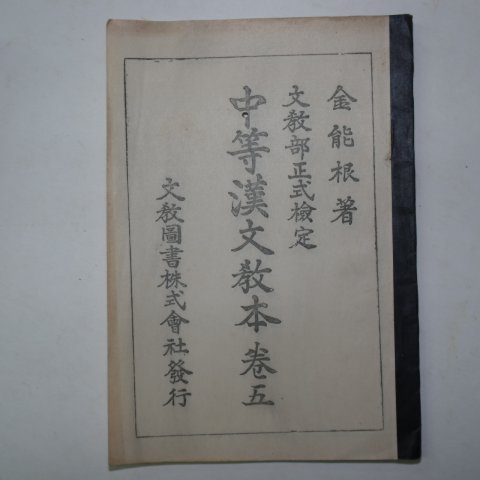 金能根著
文敎部正式檢定
中等漢文敎本卷五
文敎圖書株式會社發行